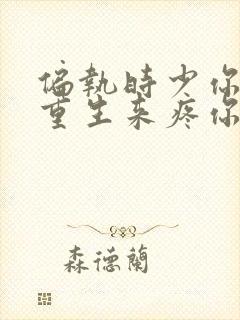 偏執時少你
重生來疼你
森德蘭